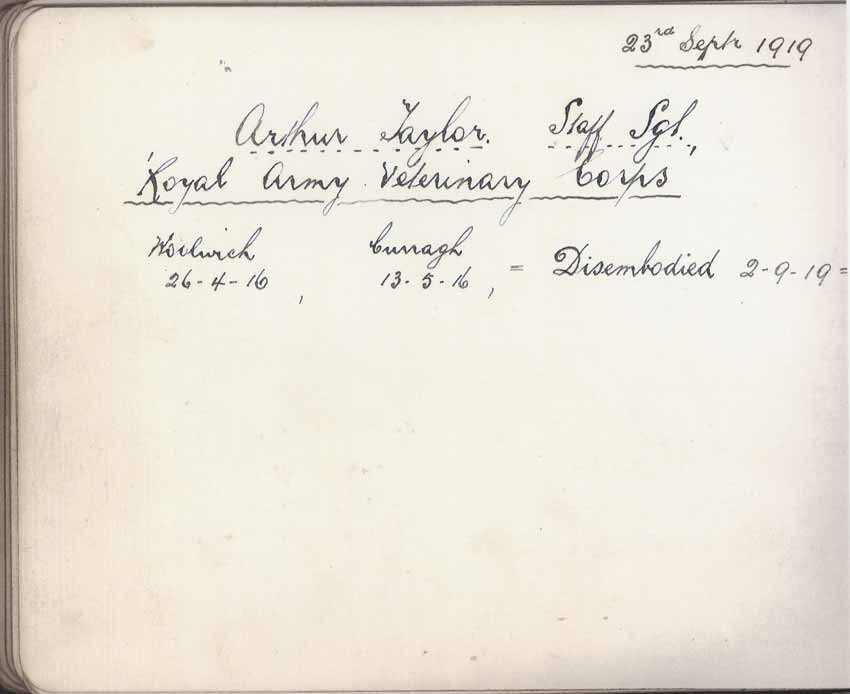 23rd Septr 1919
Arthur Taylor. Staff Sgt.,
Royal Army Veterinary Corps
Woolwich Curragh = Disembodied 2-9-19 =
26-4-16 , 13-5-16 ,